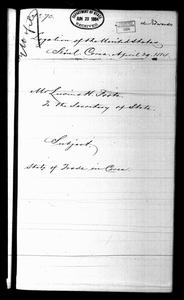 No. 90.
DEPARTMENT OF STATE
JUN 23 1884
RECEIVED
Legation of the United States
Söul, Corea, April 24, 1884.
Mr. Lucius H. Foote
To the Secretary of State.
Subject.
State of Trade in Corea.